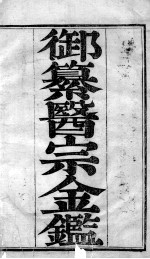 御纂醫宗金鑑